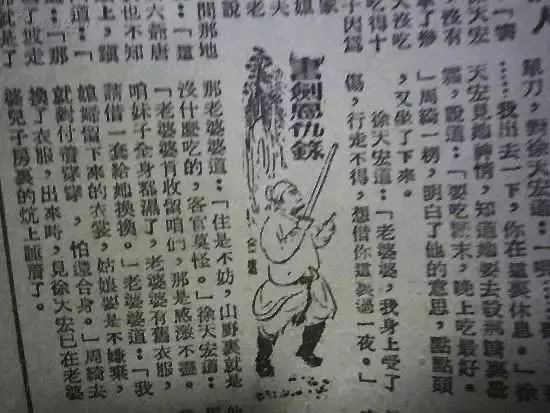 人
徐天宏
，沒有
沒吃
吃得十
子因爲
家
夫
老
說
間那地
六爺唐
也不知
上，躓
道：「
「那
就是了
單刀，對徐天宏道：「
……我出去一下，你在這裏休息。」徐
天宏見她神情，知道她要去殺
霜，說道：「要吃蔘末，晚上吃最好。
」周綺一楞，明白了他的意思，點點頭
，又坐了下來。
徐天宏道：「老婆婆，我身上受了
傷，行走不得，想借你這裏過一夜。」
書劍恩仇錄
金庸
那老婆婆道：「住是不妨，山野裏就是
沒什麼吃的，客官莫怪。」徐天宏道：
「老婆婆肯收留咱們，那是感激不盡。
咱妹子全身都濕了，老婆婆有舊衣服，
請借一套給她換換。」老婆婆道：「我
媳婦留下來的衣裳，姑娘要是不嫌棄，
就對付着穿穿，怕還合身。」周綺去
換了衣服，出來時，見徐天宏已在老婆
婆兒子房裏的炕上睡着了。